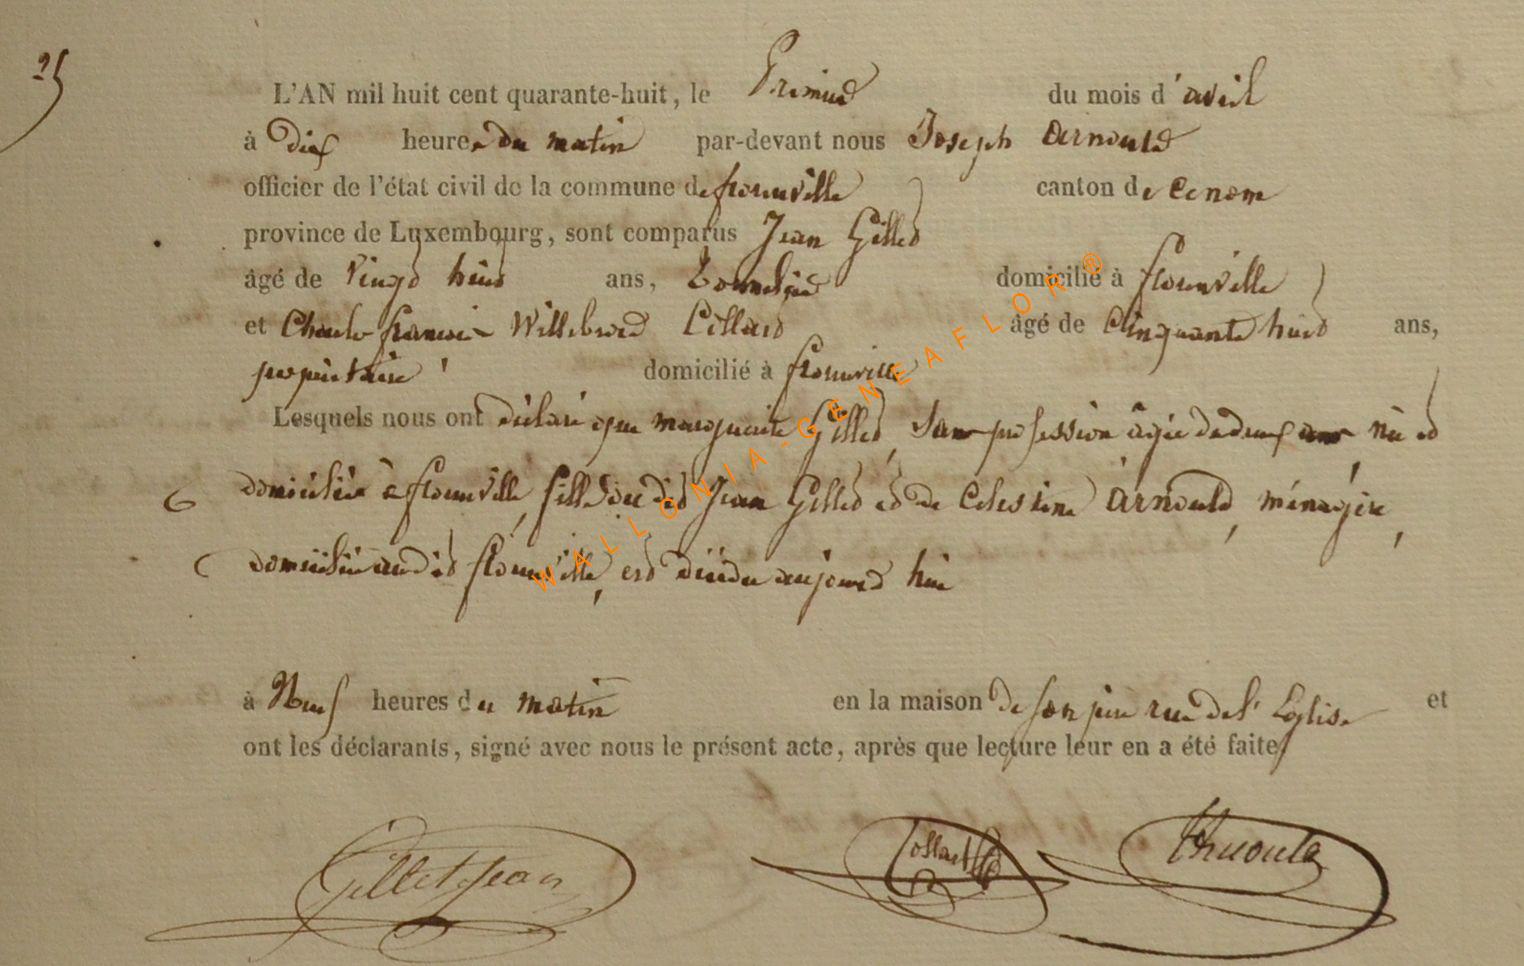 25
L'AN mil huit cent quarante-huit, le Premier du mois d'avril
à dix heures du matin par-devant nous Joseph Arnould
officier de l'état civil de la commune de florenville canton de
province de Luxembourg, sont comparus Jean Gillet
âgé de vingt huit ans, domicilié à florenville
et Charles françois Willebrord Collard âgé de Cinquante huit ans,
propriétaire domicilié à florenville
Lesquels nous ont déclaré que marguerite Gillet, Sans profession âgée de deux ans née et
domiciliée à florenville, fille du dit Jean Gillet et de Celestine Arnould, ménagère,
domiciliée au dit florenville, est décédée aujourd'hui
à Neuf heures du matin en la maison de son père rue de l'Eglise et
ont les déclarants, signé avec nous le présent acte, après que lecture leur en a été faite
Gillet Jean Collard Arnould
WALLONIA-GENEAFLOR®